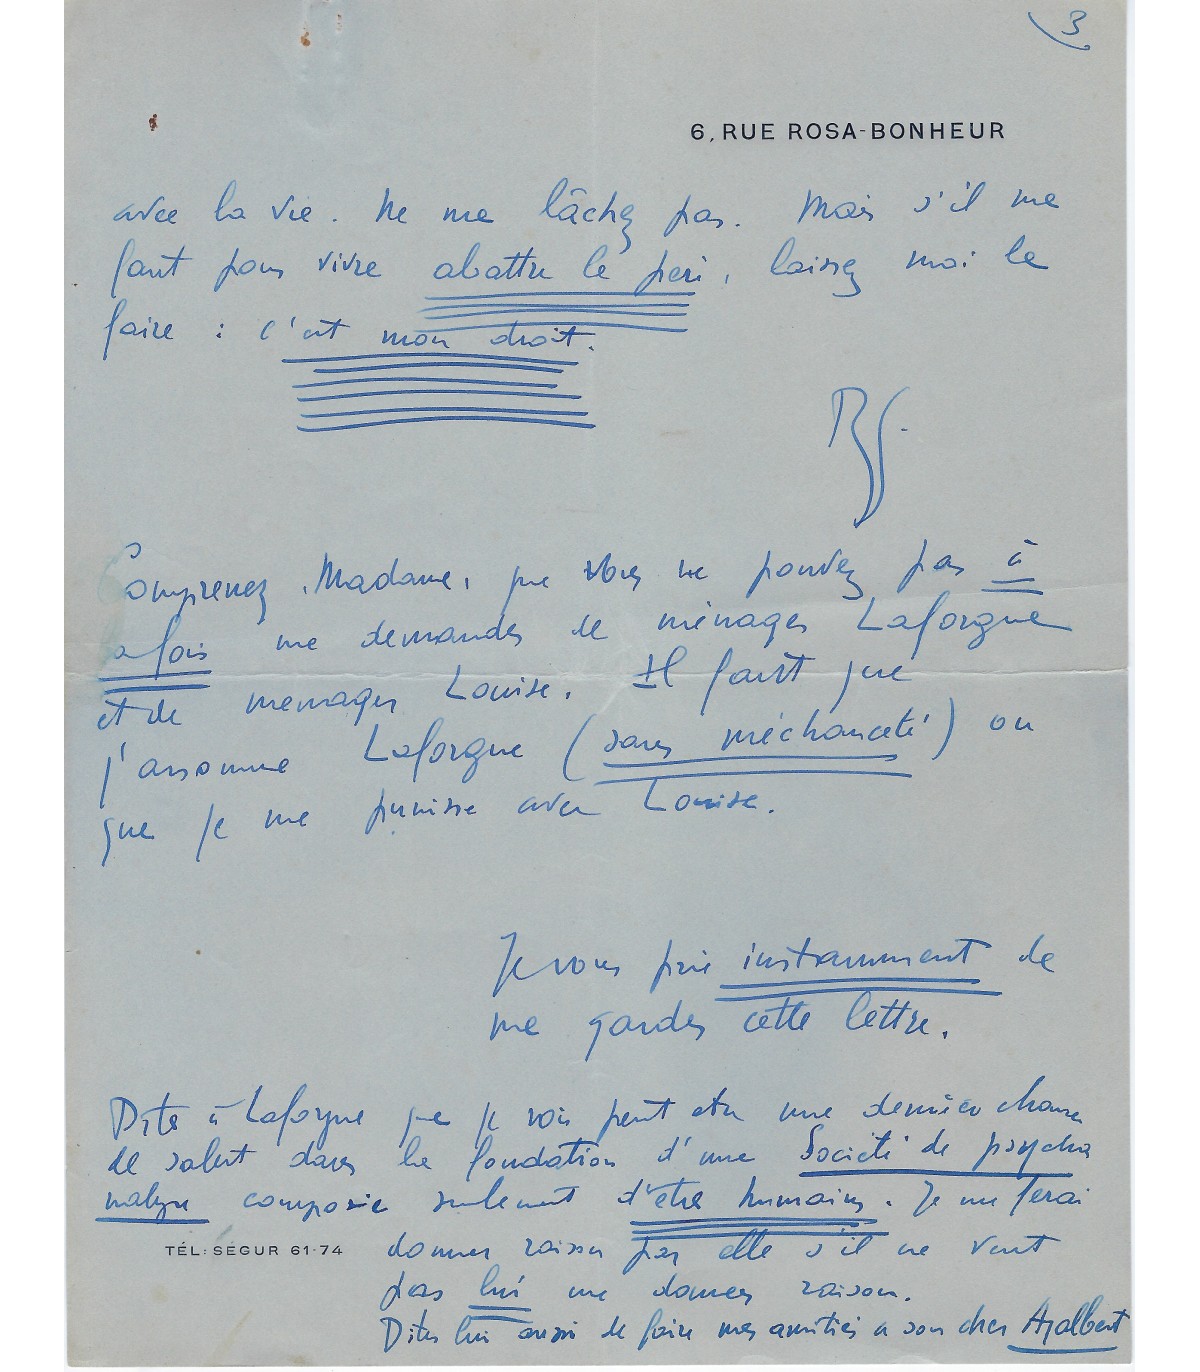 3
6, RUE ROSA-BONHEUR
avec la vie. Ne me lâchez pas. Mais s'il me
faut pour vivre abattre le père, laissez moi le
faire : c'est mon droit.
Comprenez, Madame, que vous ne pouvez pas à
la fois me demander de ménager Laforgue
et de menager Louise. Il faut que
j'assomme Laforgue (sans méchanceté) ou
que je me punisse avec Louise.
Je vous prie instamment de
me garder cette lettre.
Dites à Laforgue que je vois peut etre une dernière chance
de salut dans la fondation d'une Société de psycha
nalyse composée seulement d'etres humains. Je me ferai
TÉL: SÉGUR 61-74
donner raison par elle s'il ne veut
pas lui me donner raison.
Dites lui aussi de faire mes amitiés a son cher